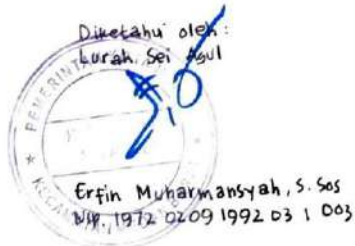 Diketahui oleh :
Lurah Sei Agul
PEMERINTA
KECAM
Erfin Muharmansyah, S. Sos
Nip. 1972 0209 1992 03 1 003